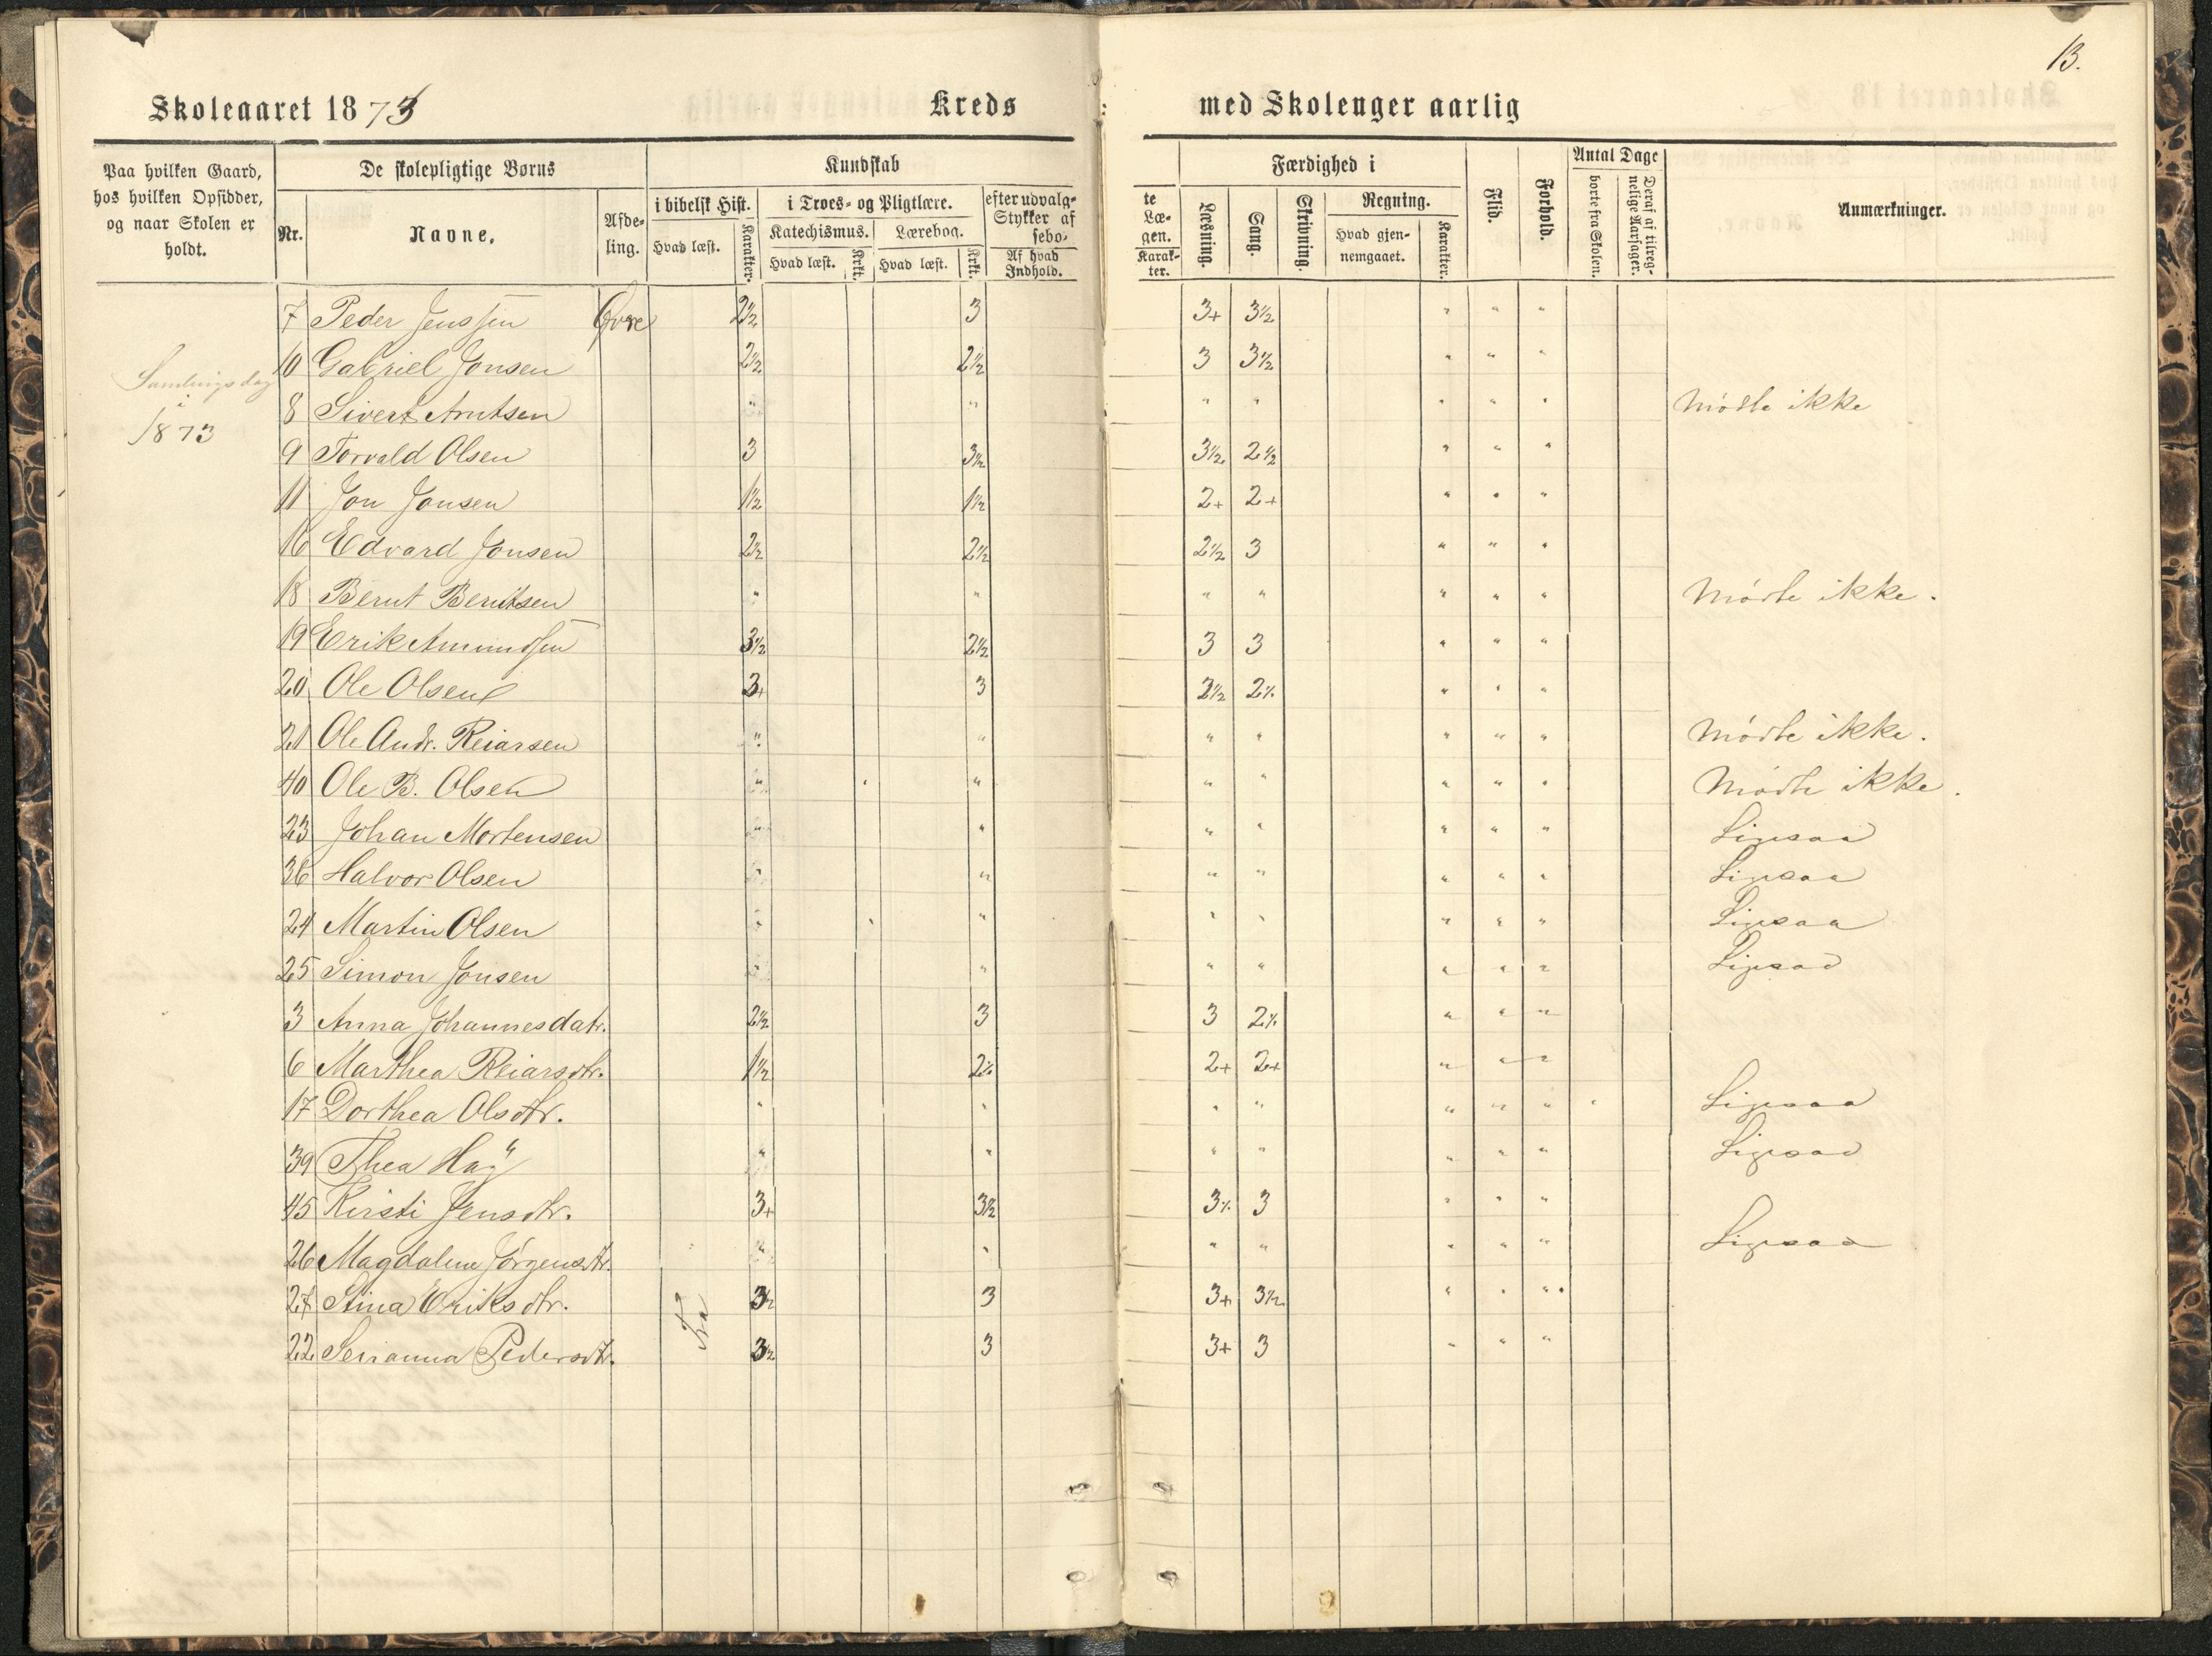 13.
Skoleaaret 1873 Kreds med Skolenger aarlig
Paa hvilken Gaard, hos hvilken Opsidder, og naar Skolen er holdt.
De skolepligtige Børns
Nr. Navne. Afdeling.
Kundskab
i bibelsk Hist. Hvad læst. Karakter.
i Troes- og Pligtlære.
Katechismus. Hvad læst. Krkt.
Lærebog. Hvad læst. Krkt.
efter udvalg- Stykker af sebo-
Af hvad Indhold.
te Læ- gen. Karak- ter.
Færdighed i
Læsning. Sang. Skrivning.
Regning. Hvad gjen- nemgaaet. Karakter.
Flid. Forhold.
Antal Dage
borte fra Skolen. Deraf af tilreg- nelige Aarsager.
Anmærkninger.
Samlingsdag
i
1873
7 Peder Jenssen Øvre 2½ 3 3+ 3½ " " "
10 Gabriel Jonsen 2½ 2½ 3 3½ " " "
8 Sivert Arntsen " " " " " " " Mødte ikke
9 Torvald Olsen 3 3½ 3½ 2½ " " "
11 Jon Jonsen 1½ 1½ 2+ 2+ " " "
16 Edvard Jonsen 2½ 2½ 2½ 3 " " "
18 Bernt Berntsen " " " " " " " Mødte ikke.
19 Erik Amundsen 3½ 2½ 3 3 " " "
20 Ole Olsen 3+ 3 2½ 2½ " " "
21 Ole Andr. Reiarsen " " " " " " " Mødte ikke.
40 Ole B. Olsen " " " " " " " Mødte ikke.
23 Johan Mortensen " " " " " " " Ligesaa
36 Halvor Olsen " " " " " " " Ligesaa
24 Martin Olsen " " " " " " " Ligesaa
25 Simon Jonsen " " " " " " " Ligesaa
3 Anna Johannesdatr. 2½ 3 3 2½ " " "
6 Marthea Reiarsdtr. 1½ 2½ 2+ 2+ " " "
17 Dorthea Olsdtr. " " " " " " " Ligesaa
39 Thea Hag " " " " " " " Ligesaa
45 Kirsti Jensdtr. 3+ 3½ 3½ 3 " " "
26 Magdalene Jørgensdtr. " " " " " " " Ligesaa
27 Stina Eriksdtr. 3½ 3 3+ 3½ " " "
22 Serianna Pedersdtr. 3½ 3 3+ 3 " " "